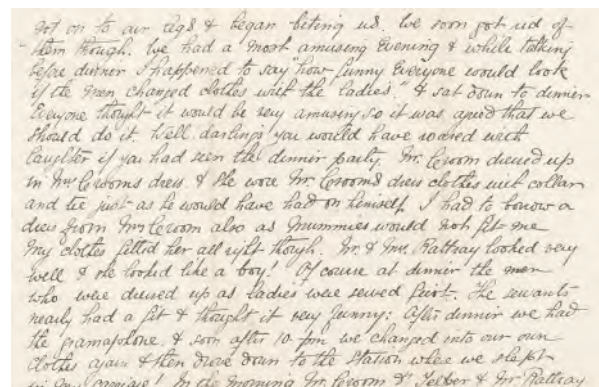 got on to our legs & began biting us. We soon got rid of
them though. We had a most amusing Evening & while talking
before dinner I happened to say "how funny Everyone would look
if the men changed clothes with the ladies." & sat down to dinner
Everyone thought it would be very amusing so it was agreed that we
should do it. Well darlings you would have roared with
laughter if you had seen the dinner party. Mr. Croom dressed up
in Mrs Crooms dress & she wore Mr. Crooms dress clothes with collar
and tie just as he would have had on himself. I had to borrow a
dress from Mrs Croom also as Mummies would not fit me
My clothes fitted her all right though. Mr. & Mrs. Rattray looked very
well & she looked like a boy! Of course at dinner the men
who were dressed up as ladies were served first. The servants
nearly had a fit & thought it very funny: After dinner we had
the gramaphone. & soon after 10 pm we changed into our own
clothes again & then drove down to the Station where we slept
in my carriage! In the morning Mr. Croom Dr Telber & Mr. Rattray